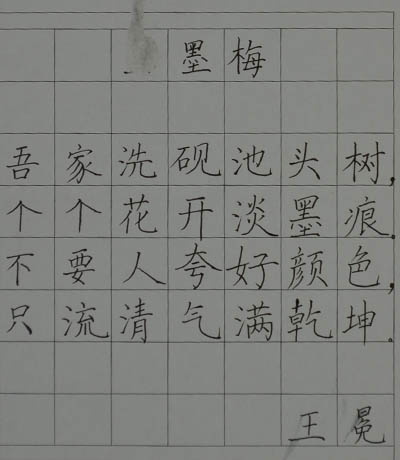 墨梅
吾家洗砚池头树,
个个花开淡墨痕。
不要人夸好颜色,
只流清气满乾坤。
王冕